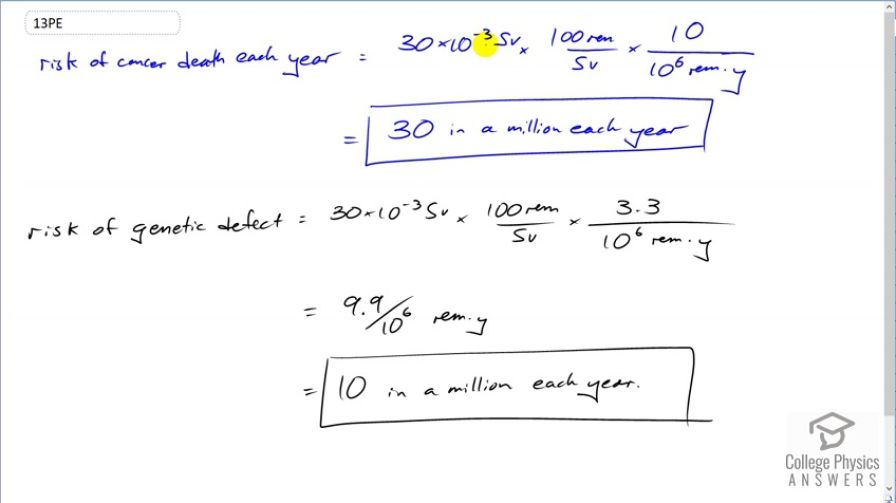 13PE
risk of cancer death each year = 30 × 10⁻³ Sv × 100 rem/Sv × 10/10⁶ rem·y
= 30 in a million each year
risk of genetic defect = 30 × 10⁻³ Sv × 100 rem/Sv × 3.3/10⁶ rem·y
= 9.9/10⁶ rem·y
= 10 in a million each year.
College Physics
ANSWERS